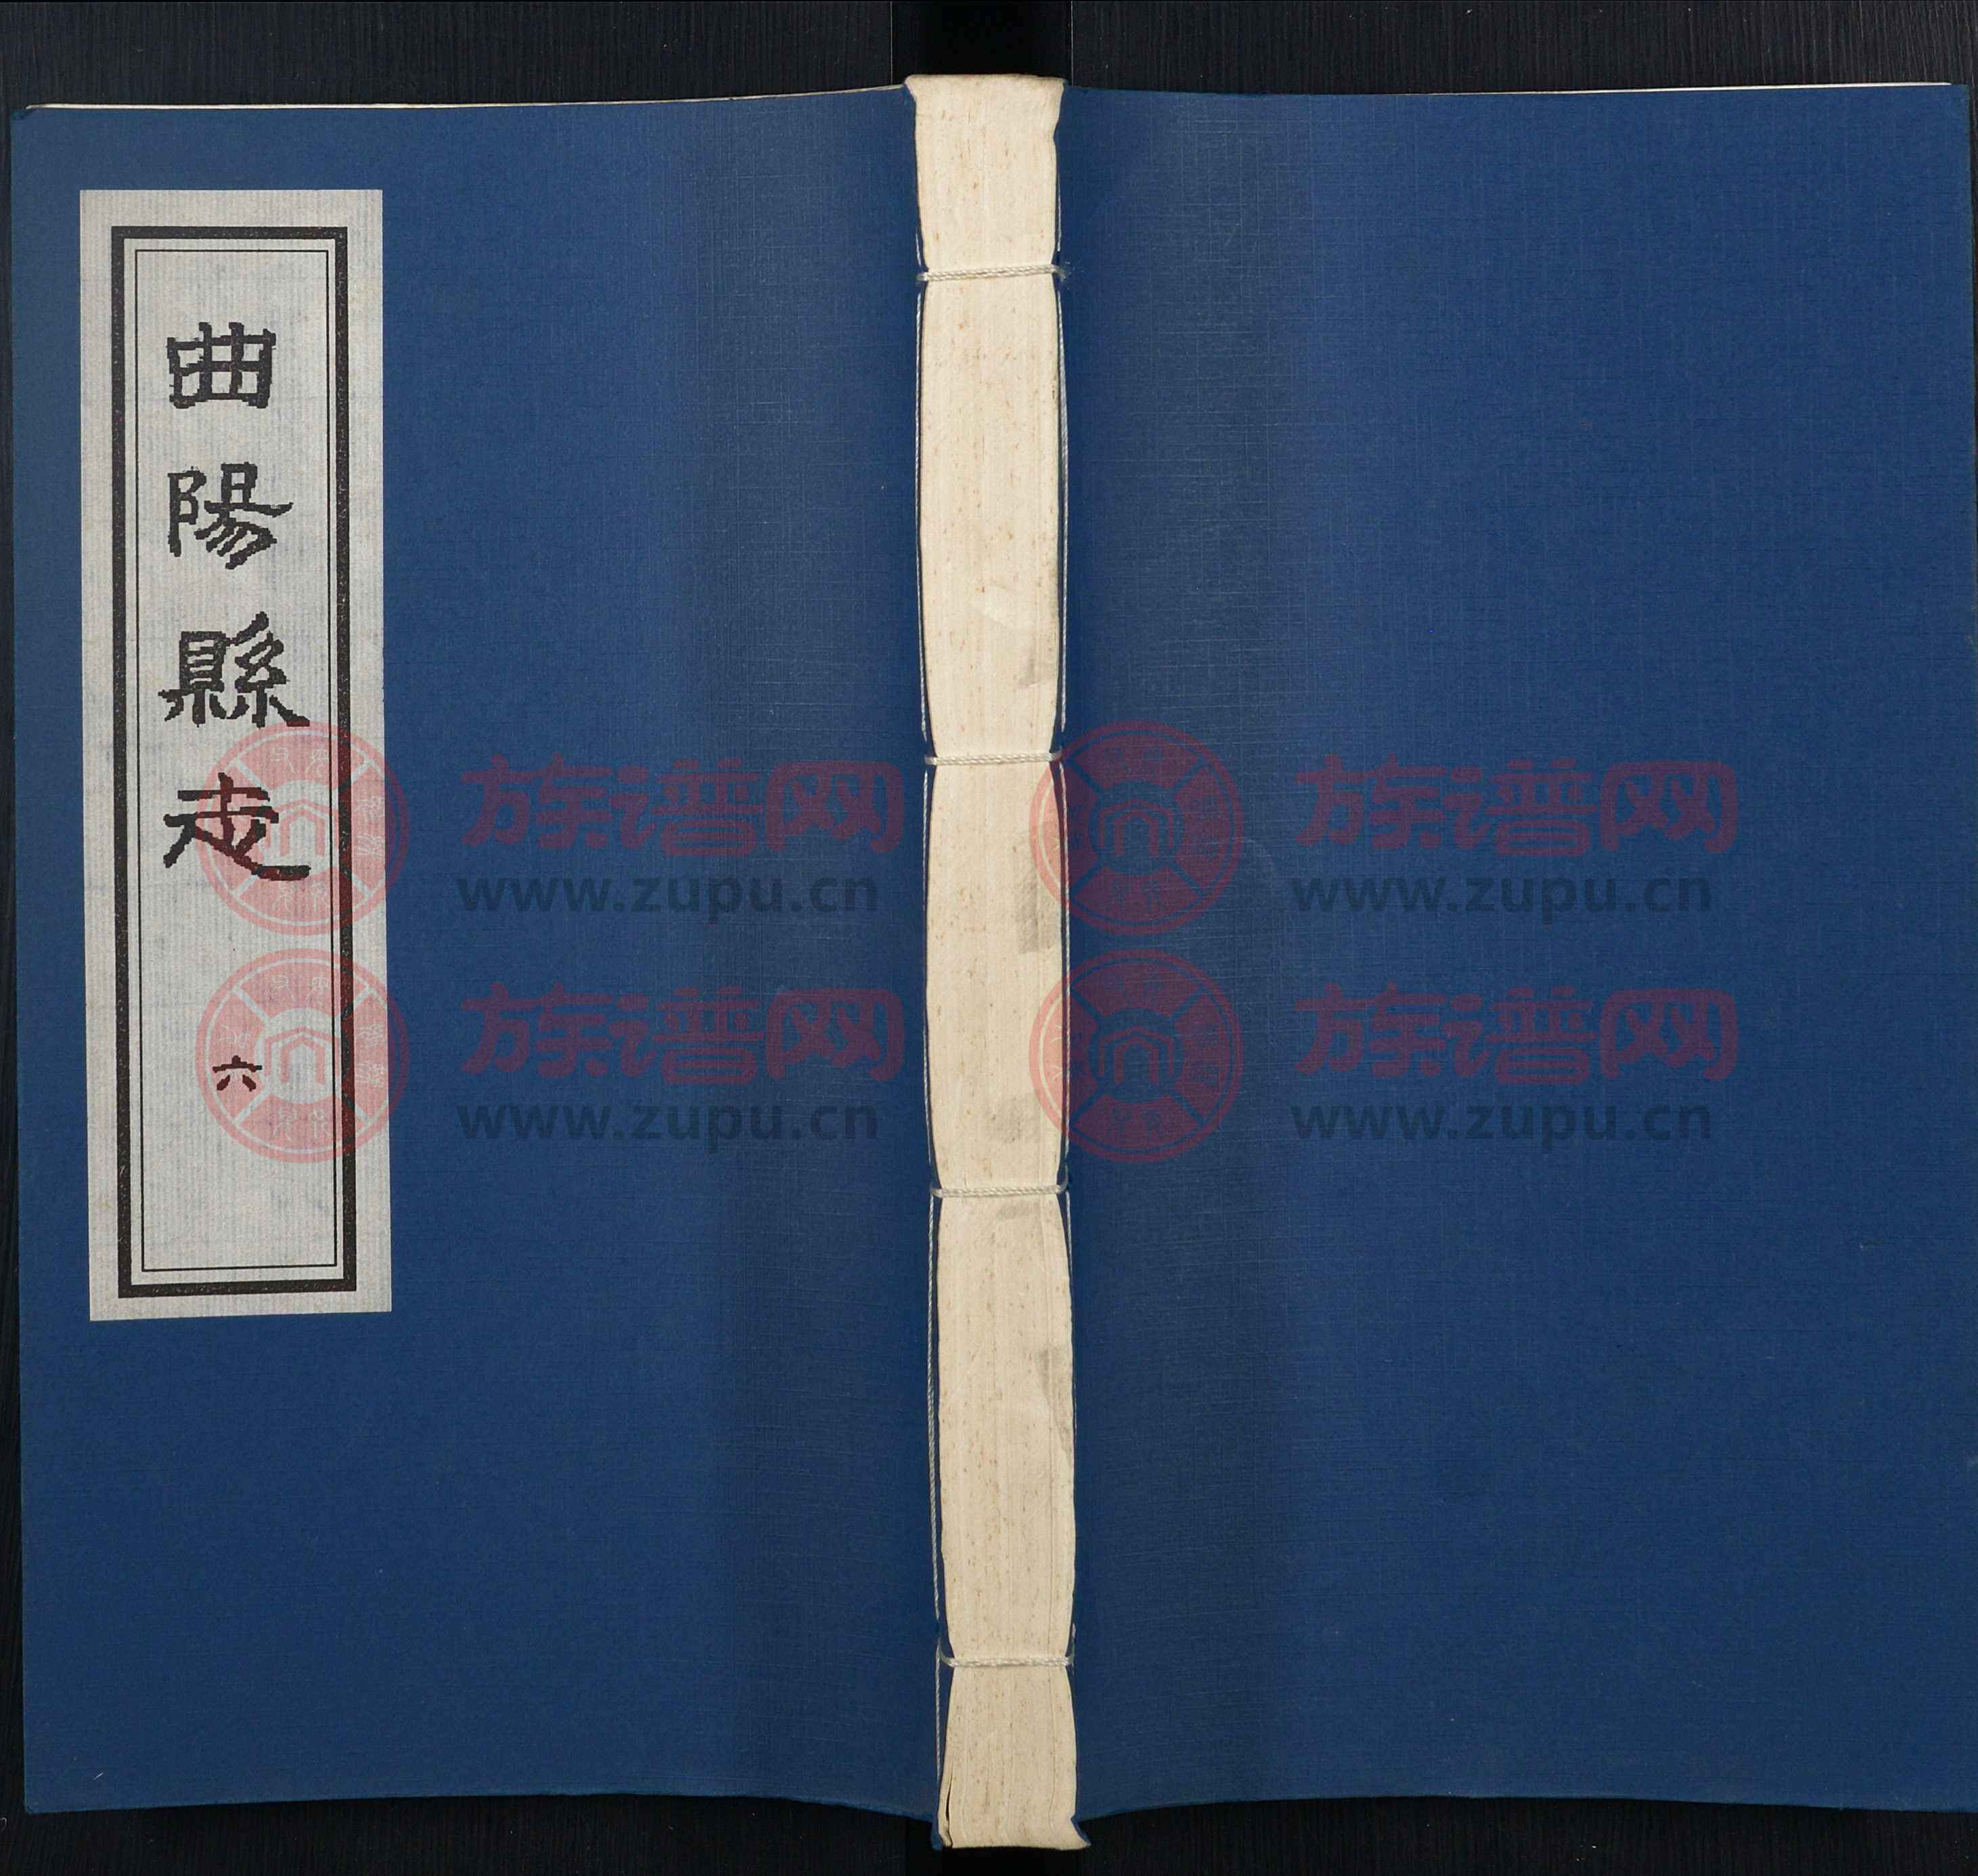 曲陽縣志
六
族谱网
www.zupu.cn
族谱网
www.zupu.cn
族谱网
www.zupu.cn
族谱网
www.zupu.cn